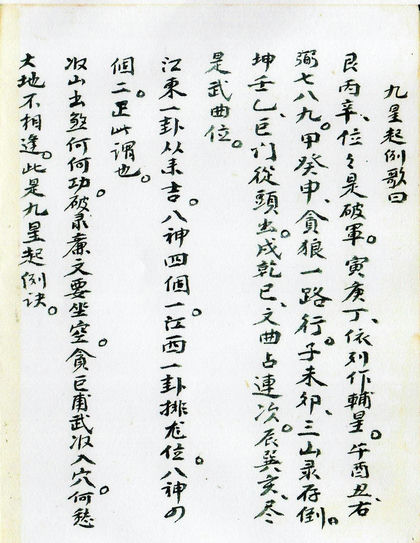 九星起例歌曰
艮丙辛、位々是破軍。寅庚丁、依列作輔星。午酉丑、右
弼七八九。甲癸申、貪狼一路行。子未卯、三山录存倒。
坤壬乙、巨门從頭出。戌乾巳、文曲占連次。辰巽亥、尽
是武曲位。
江東一卦从来吉。八神四個一江西一卦排龙位。八神四
個二正此谓也。
收山出煞何何功。破录廉文要坐空。貪巨甫武收入穴。何愁
大地不相逢。此是九星起例诀。